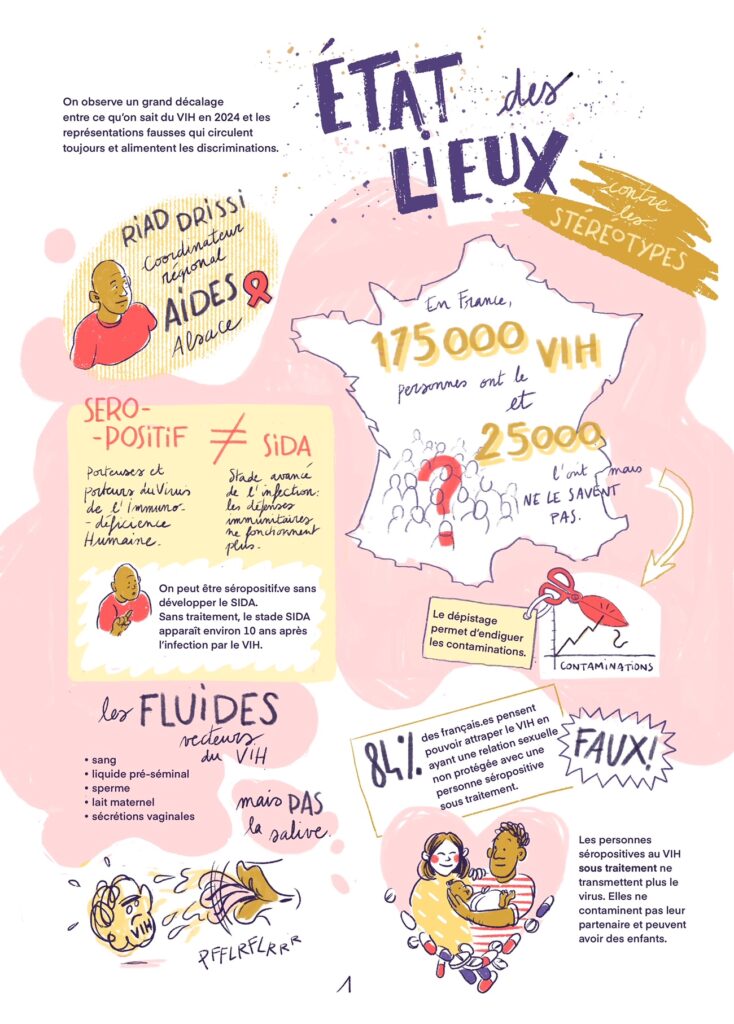 ÉTAT des
LIEUX
contre
les
STÉRÉOTYPES
On observe un grand décalage
entre ce qu'on sait du VIH en 2024 et les
représentations fausses qui circulent
toujours et alimentent les discriminations.
RIAD DRISSI
Coordinateur
régional
AIDES
Alsace
En France,
175 000 VIH
personnes ont le
et
25000
l'ont mais
NE LE SAVENT
PAS.
?
SERO-
-POSITIF ≠ SIDA
Porteuses et
porteurs du Virus
de l'Immuno-
-déficience
Humaine.
Stade avancé
de l'infection:
les défenses
immunitaires
ne fonctionnent
plus.
On peut être séropositif.ve sans
développer le SIDA.
Sans traitement, le stade SIDA
apparaît environ 10 ans après
l'infection par le VIH.
Le dépistage
permet d'endiguer
les contaminations.
CONTAMINATIONS
les FLUIDES
vecteurs
du VIH
• sang
• liquide pré-séminal
• sperme
• lait maternel
• sécrétions vaginales
mais PAS
la salive.
VIH
PFFLRFLRRR
84%
des français.es pensent
pouvoir attraper le VIH en
ayant une relation sexuelle
non protégée avec une
personne séropositive
sous traitement.
FAUX!
Les personnes
séropositives au VIH
sous traitement ne
transmettent plus le
virus. Elles ne
contaminent pas leur
partenaire et peuvent
avoir des enfants.
1